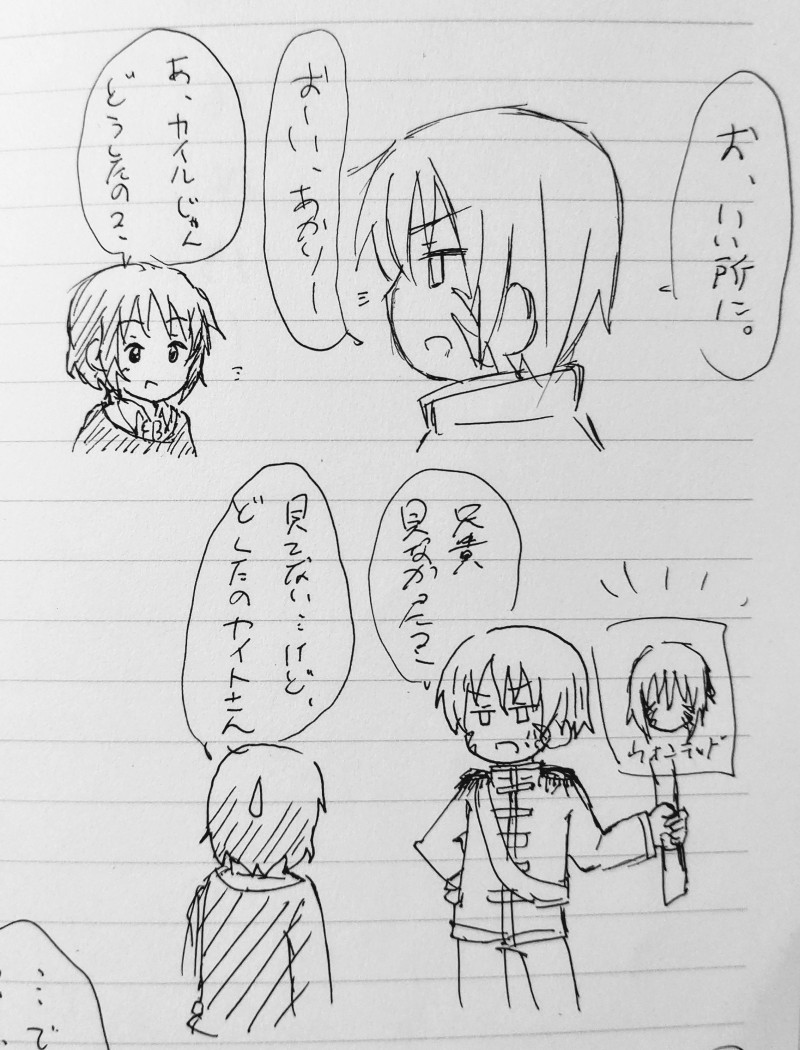 お、いい所に。
おーい、あかりー
あ、カイルじゃん
どうしたの？
兄貴
見なかった？
ウォンテッド
見てないけど、
どしたのカイトさん
…で